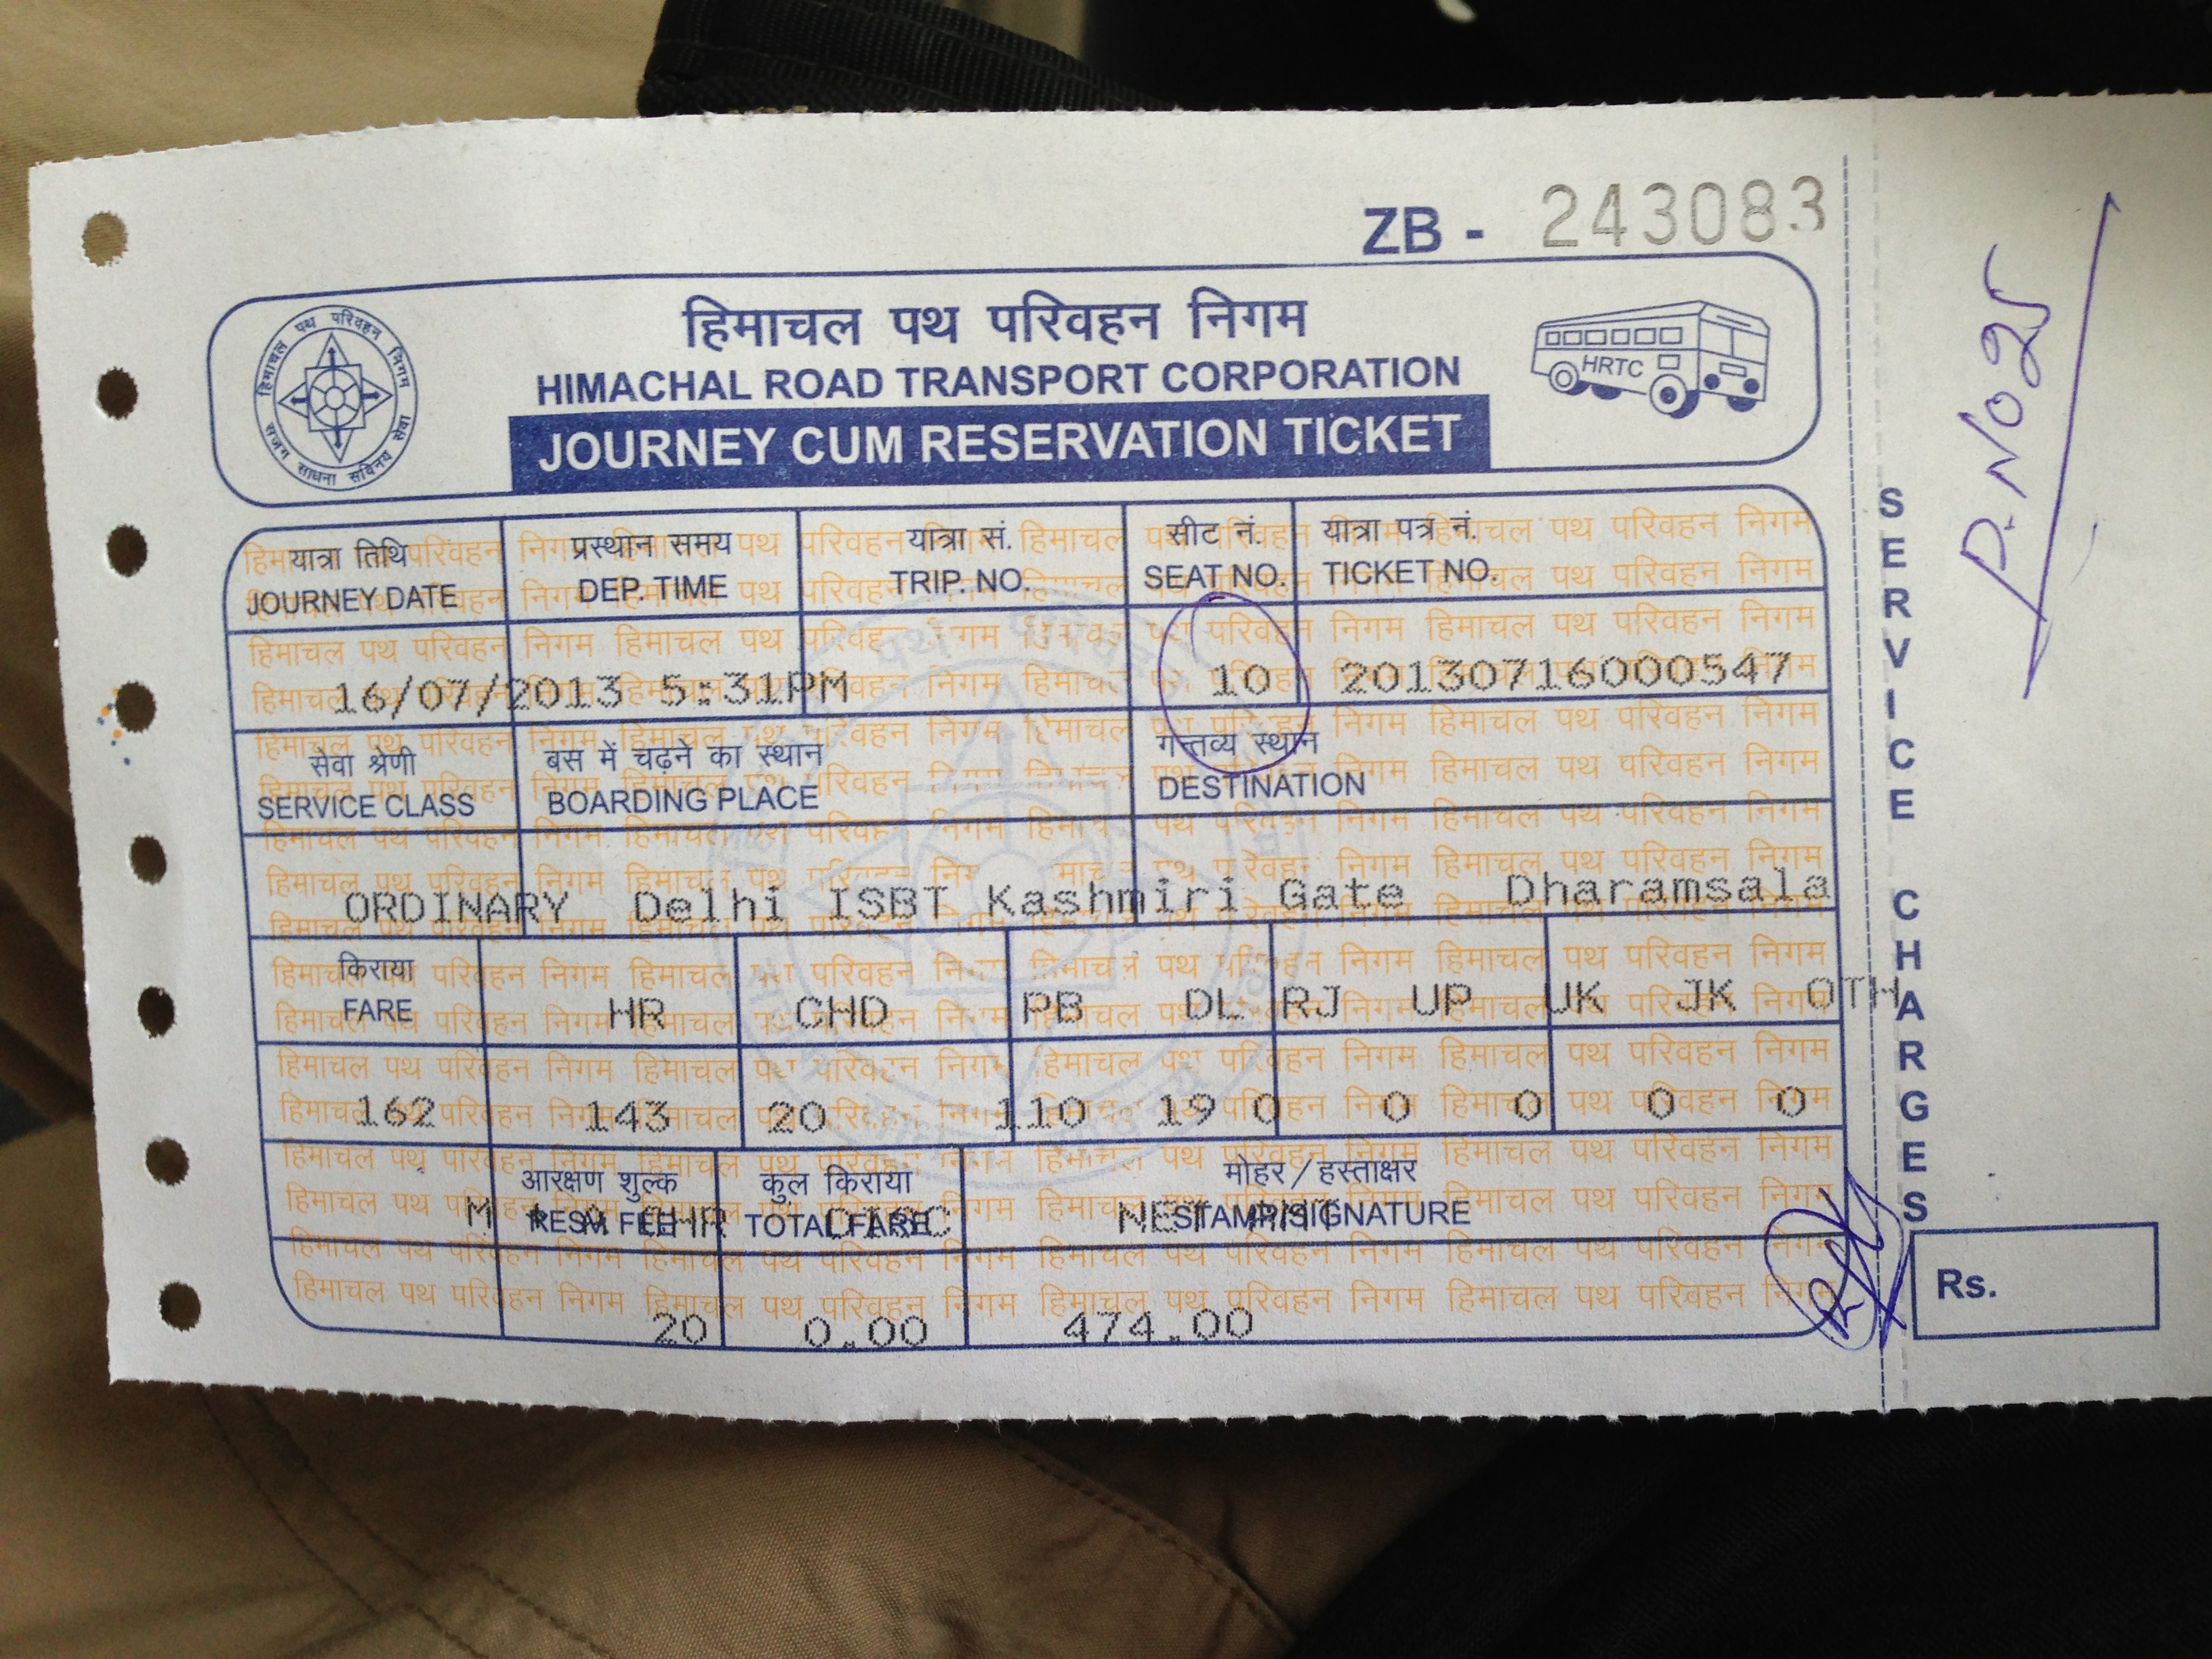 ZB - 243083
हिमाचल पथ परिवहन निगम
सजग साधना सविनय सेवा
हिमाचल पथ परिवहन निगम
HIMACHAL ROAD TRANSPORT CORPORATION
JOURNEY CUM RESERVATION TICKET
HRTC
यात्रा तिथि प्रस्थान समय यात्रा सं. सीट नं. यात्रा पत्र नं.
JOURNEY DATE DEP. TIME TRIP. NO. SEAT NO. TICKET NO.
16/07/2013 5:31PM 10 20130716000547
सेवा श्रेणी बस में चढ़ने का स्थान गन्तव्य स्थान
SERVICE CLASS BOARDING PLACE DESTINATION
ORDINARY Delhi ISBT Kashmiri Gate Dharamsala
किराया
FARE HR CHD PB DL RJ UP UK JK OTH
162 143 20 110 19 0 0 0 0 0
आरक्षण शुल्क कुल किराया मोहर / हस्ताक्षर
RESV. FEE TOTAL FARE STAMP/SIGNATURE
20 0.00 474.00
SERVICE CHARGES
Rs.
P. No 25